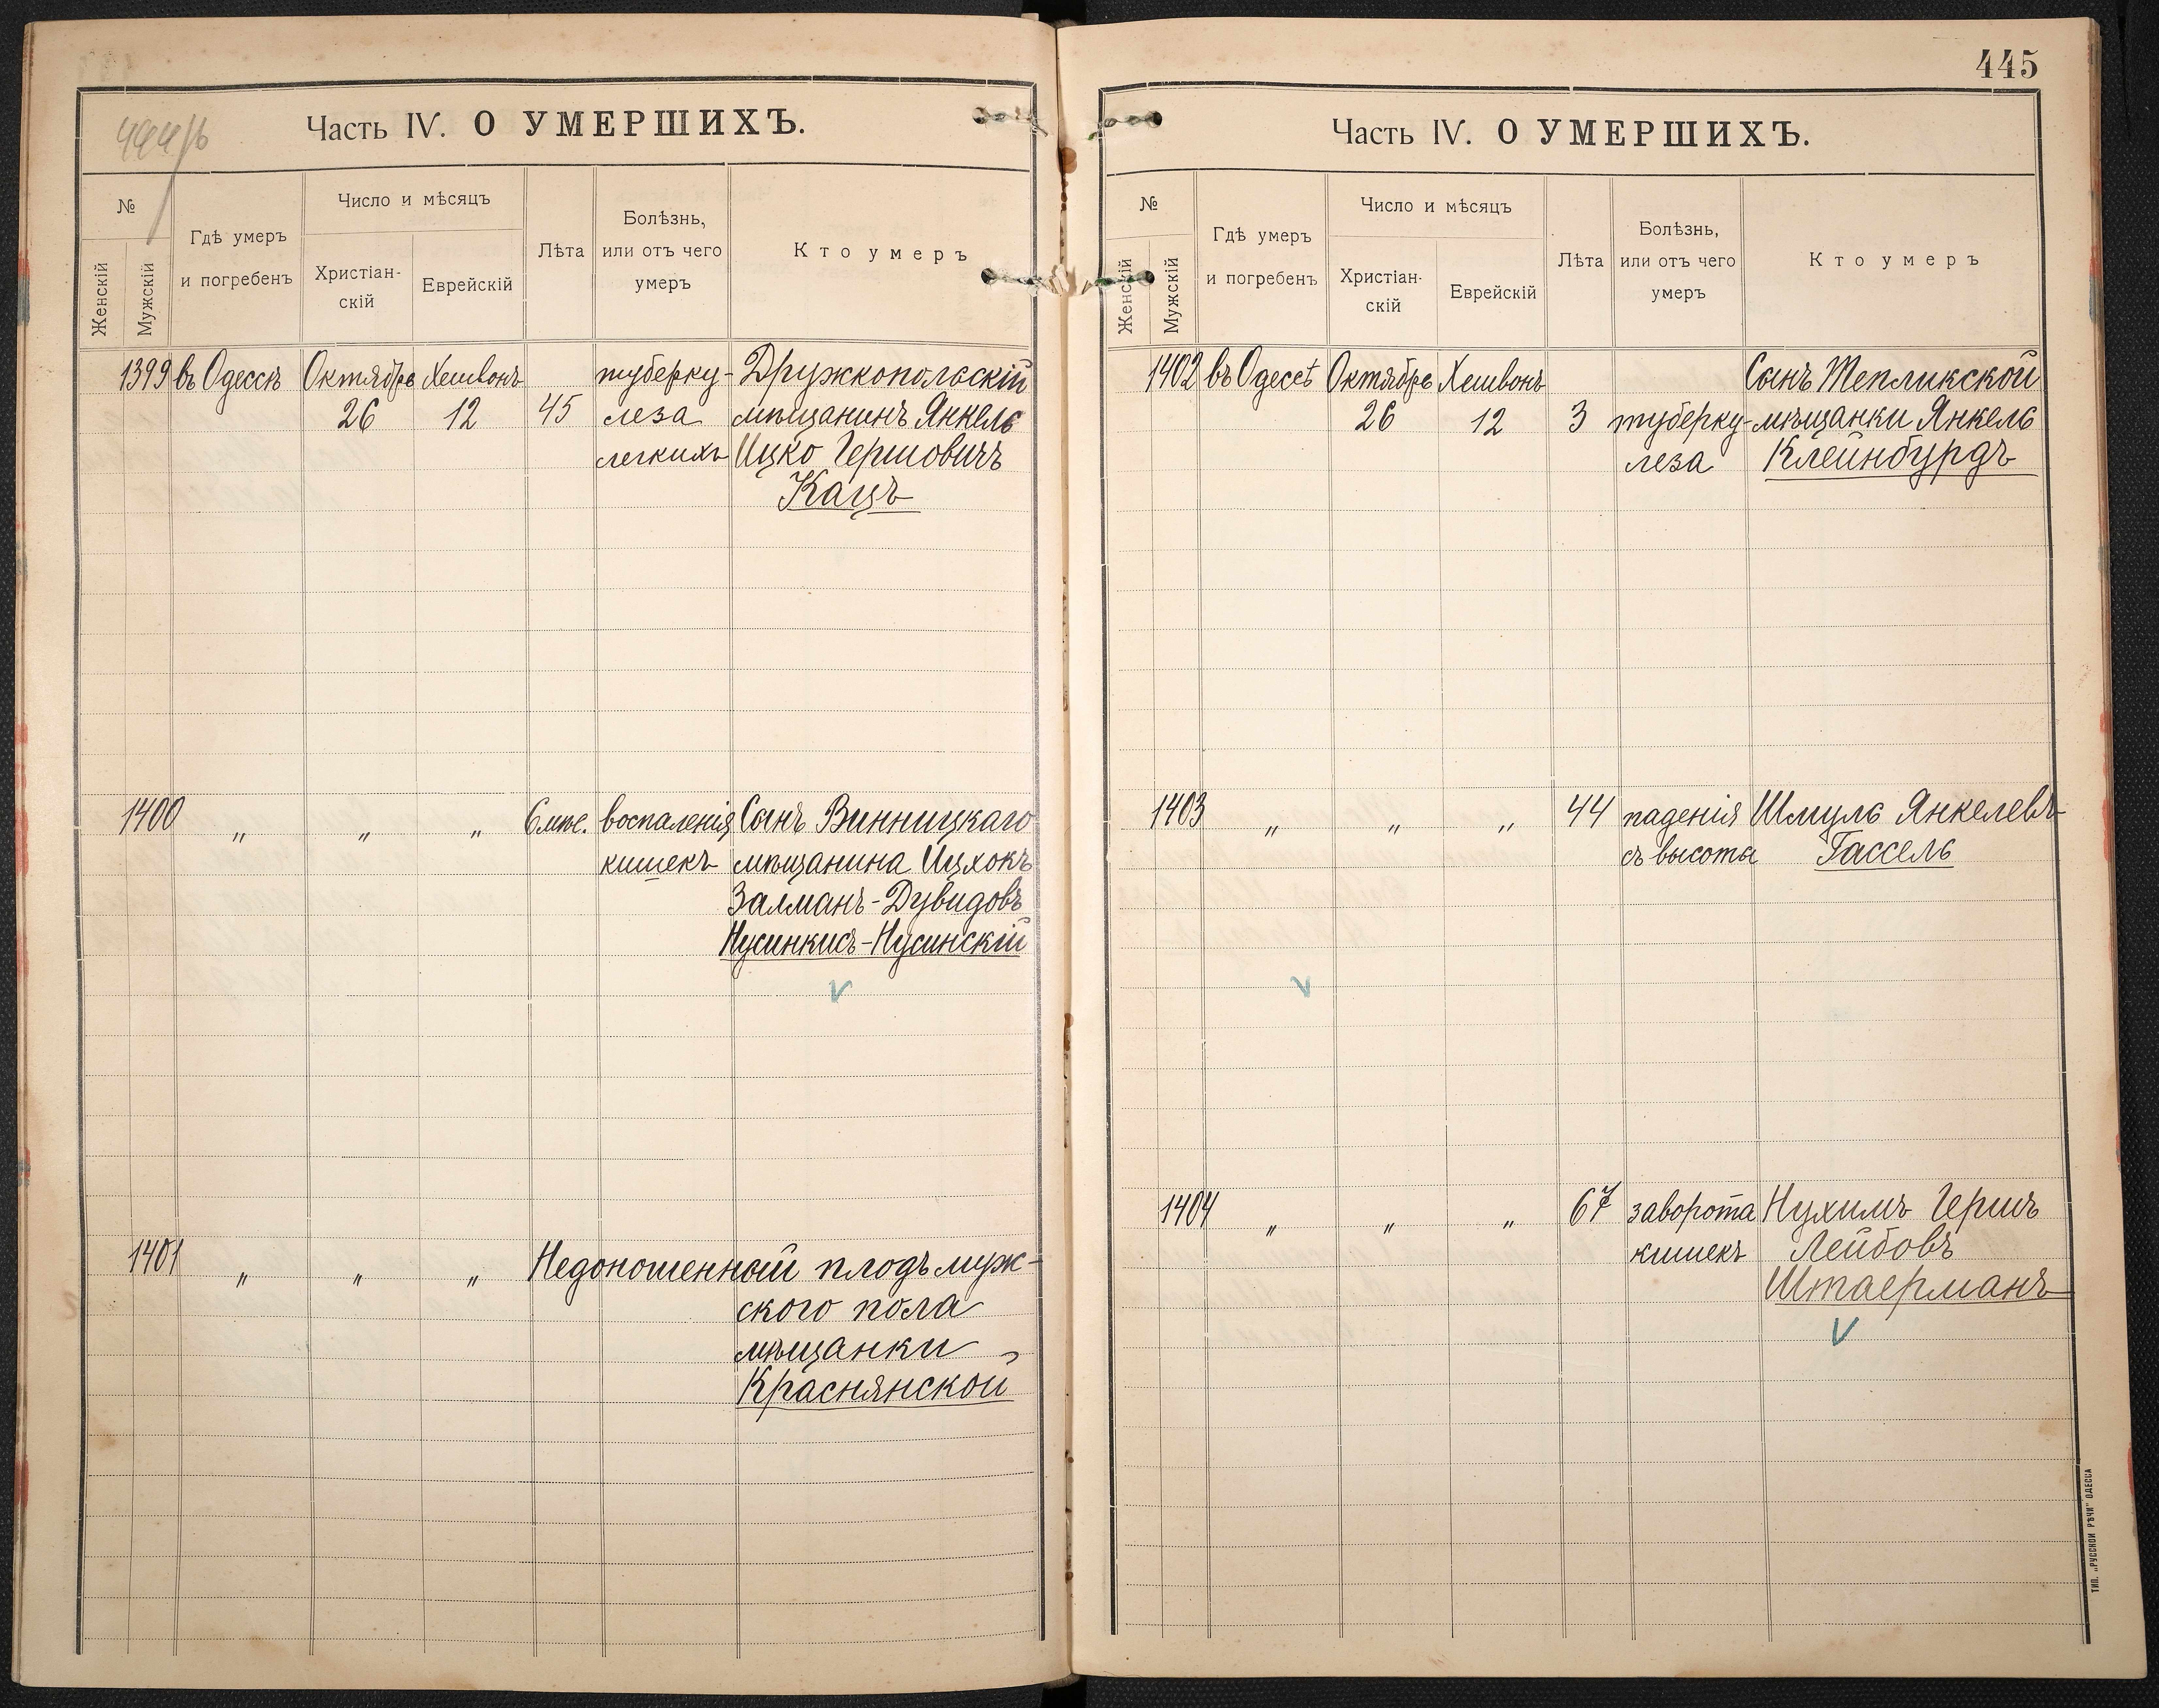 444/б
Часть IV. О УМЕРШИХЪ.
№
Женскій
Мужскій
Гдѣ умеръ
и погребенъ
Число и мѣсяцъ
Христіан-
скій
Еврейскій
Лѣта
Болѣзнь,
или отъ чего
умеръ
Кто умеръ
1399 въ Одессѣ Октября Хешвонъ туберку- Дружкопольскій
26 12 45 леза мѣщанинъ Янкель
легкихъ Ицко Гершовичъ
Кацъ
1400 " " " 6 мѣс. воспаленія Сынъ Винницкаго
кишекъ мѣщанина Ицхокъ
Залманъ-Дувидовъ
Нусинкисъ-Нусинскій
1401 " " " Недоношенный плодъ муж-
ского пола
мѣщанки
Краснянской
445
Часть IV. О УМЕРШИХЪ.
№
Женскій
Мужскій
Гдѣ умеръ
и погребенъ
Число и мѣсяцъ
Христіан-
скій
Еврейскій
Лѣта
Болѣзнь,
или отъ чего
умеръ
Кто умеръ
1402 въ Одессѣ Октября Хешвонъ Сынъ Тепликской
26 12 3 туберку- мѣщанки Янкель
леза Клейнбурдъ
1403 " " " 44 паденія Шмуль Янкелевъ
съ высоты Гассель
1404 " " " 67 заворота Нухимъ Гершъ
кишекъ Лейбовъ
Штаерманъ
ТИП. „РУССКОЙ РѢЧИ" ОДЕССА